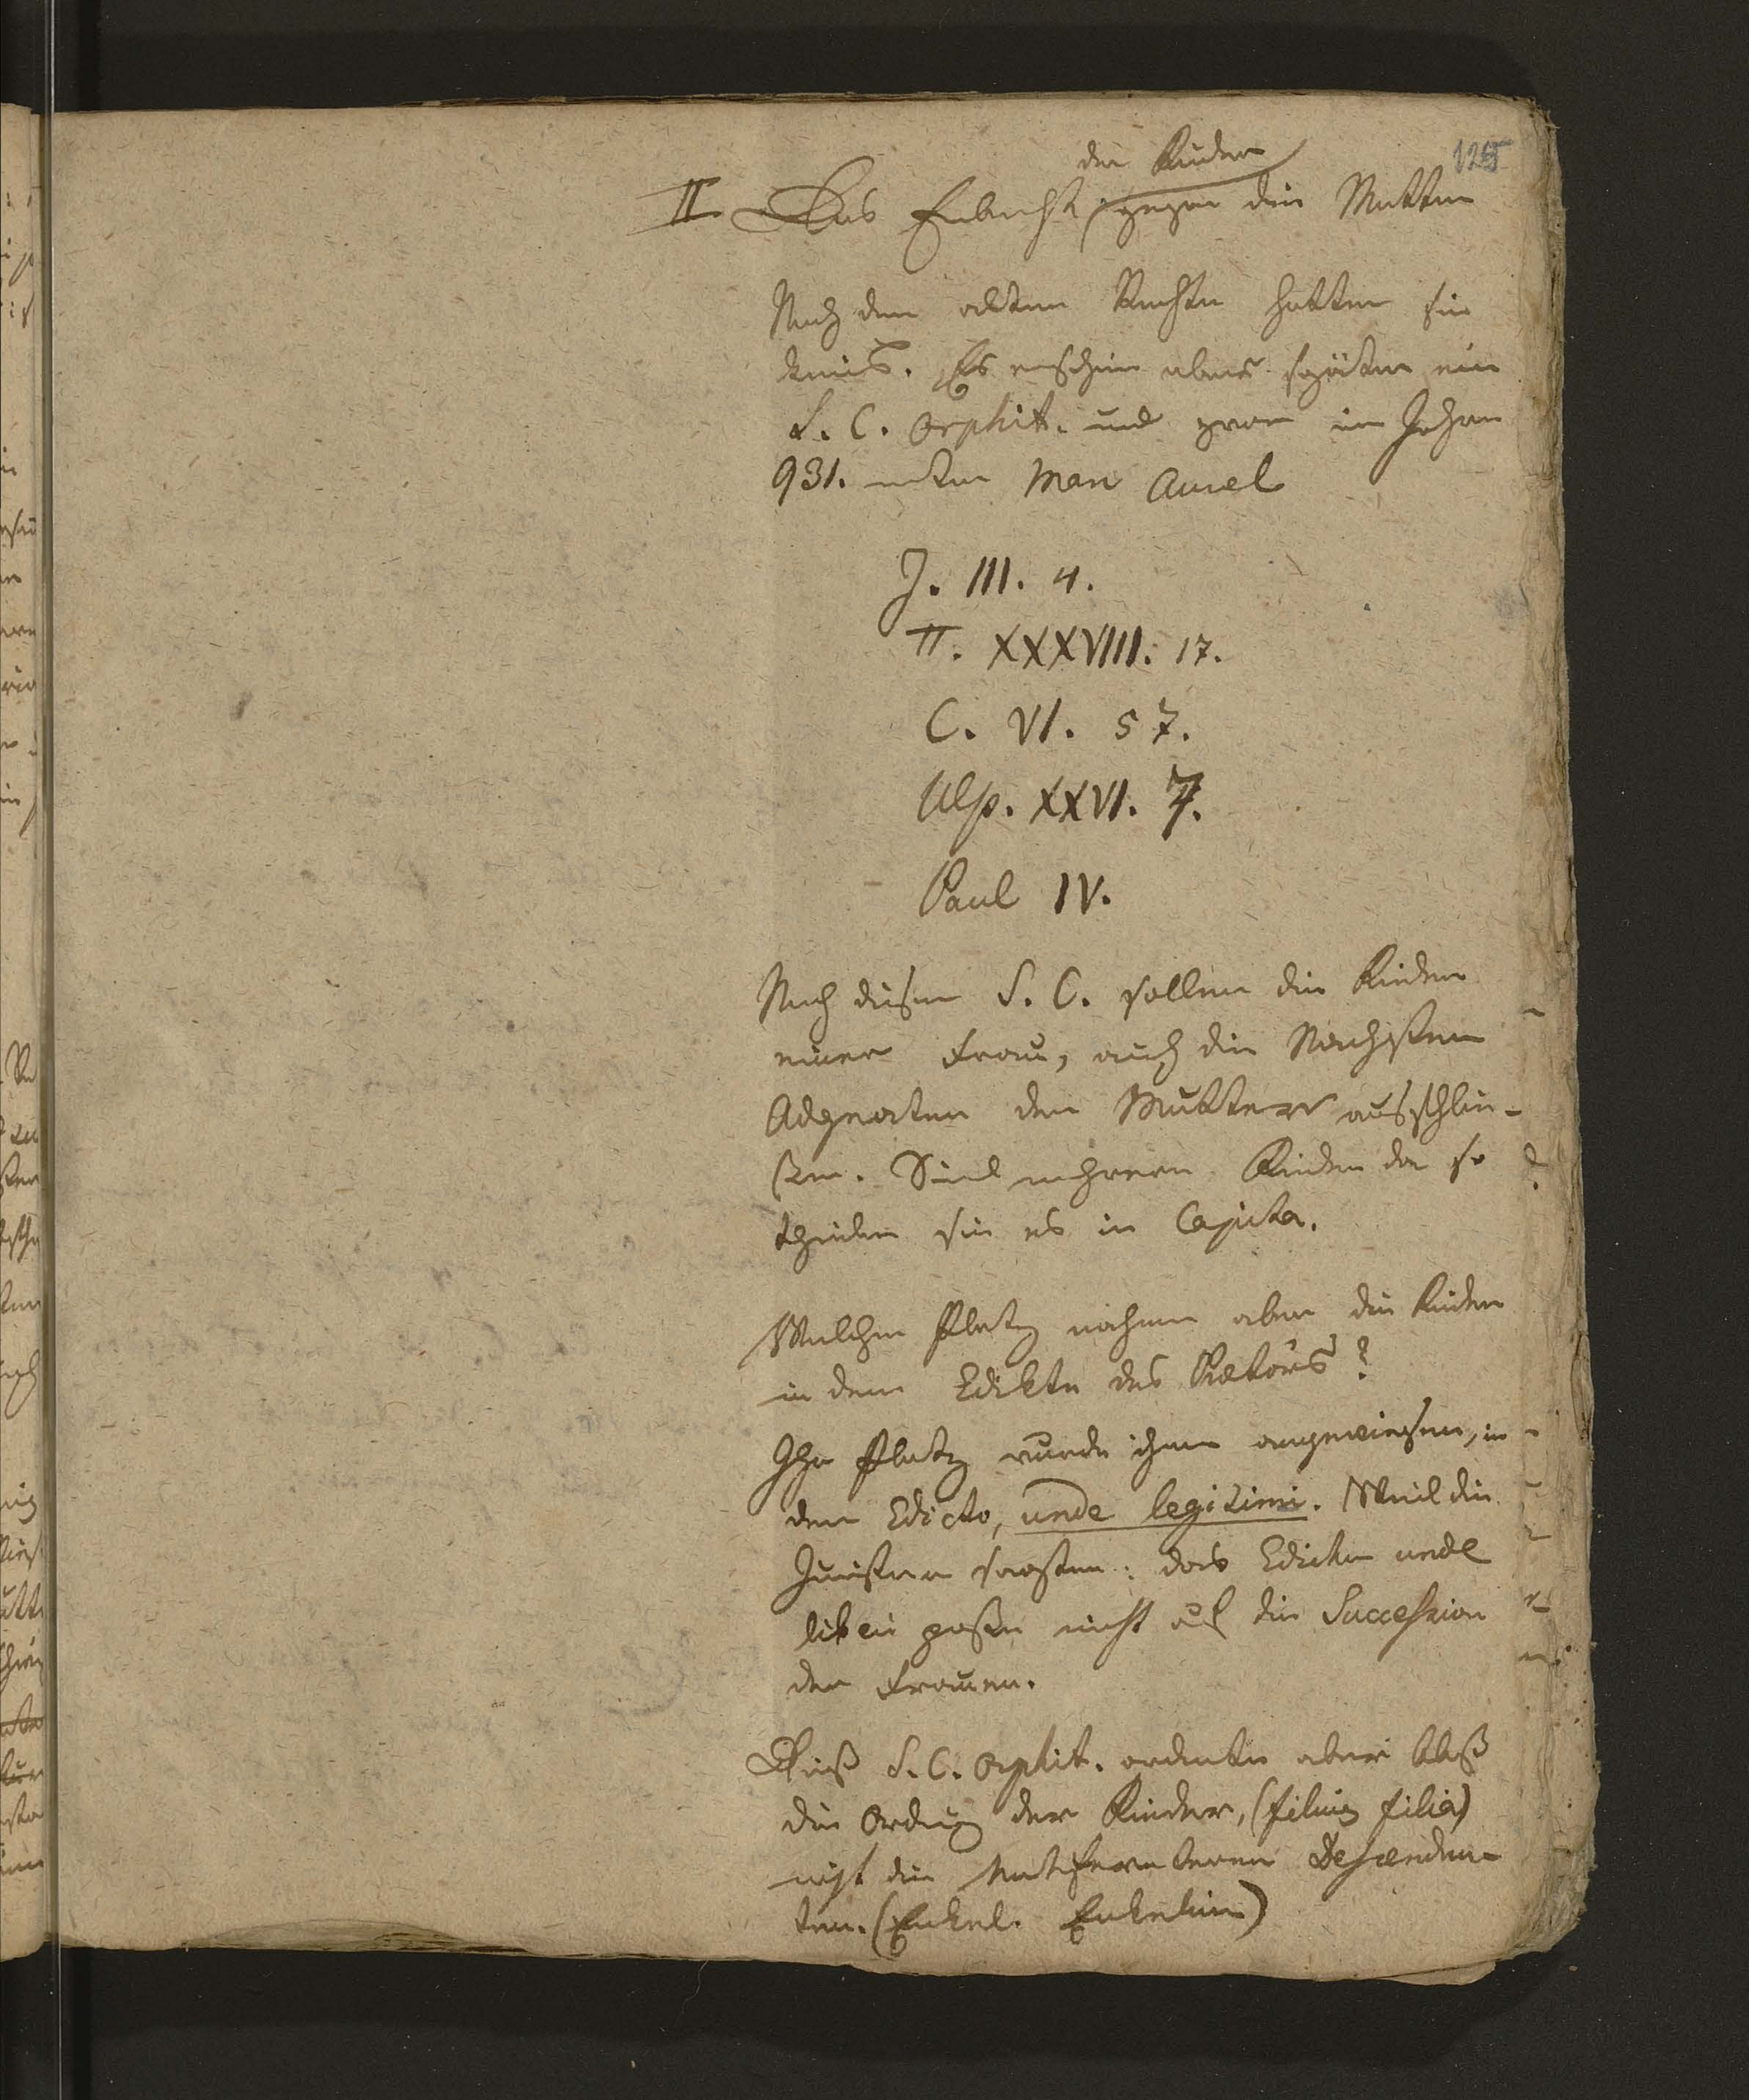 125
der Kinder
II. Das Erbrecht gegen die Mutter
Nach dem alten Rechte hatten sie
keins. Es erschien aber später ein
S. C. Orphit. und zwar im Jahre
931. unter Marc Aurel
J. III. 4.
π. XXXVIII. 17.
C. VI. 57.
Ulp. XXVI. 7.
Paul IV.
Nach diesem S. C. sollen die Kinder
einer Frau, auch die Nächsten
Adgnaten der Mutter ausschlie-
ßen. Sind mehrere Kinder da so
theilen sie es in Capita.
Welchen Platz nahmen aber die Kinder
in dem Edikte des Prätors?
Ihr Platz wurde ihnen angewiesen, in
dem Edicto, unde legitimi. Weil die
Juristen sagten: das Edictum unde
liberi passe nicht auf die Succession
der Frauen.
Dieß S. C. Orphit. ordnete aber bloß
die Ordnung der Kinder, (filius filia)
nicht die entfernteren Descenden-
ten. (Enkel. Enkelin)